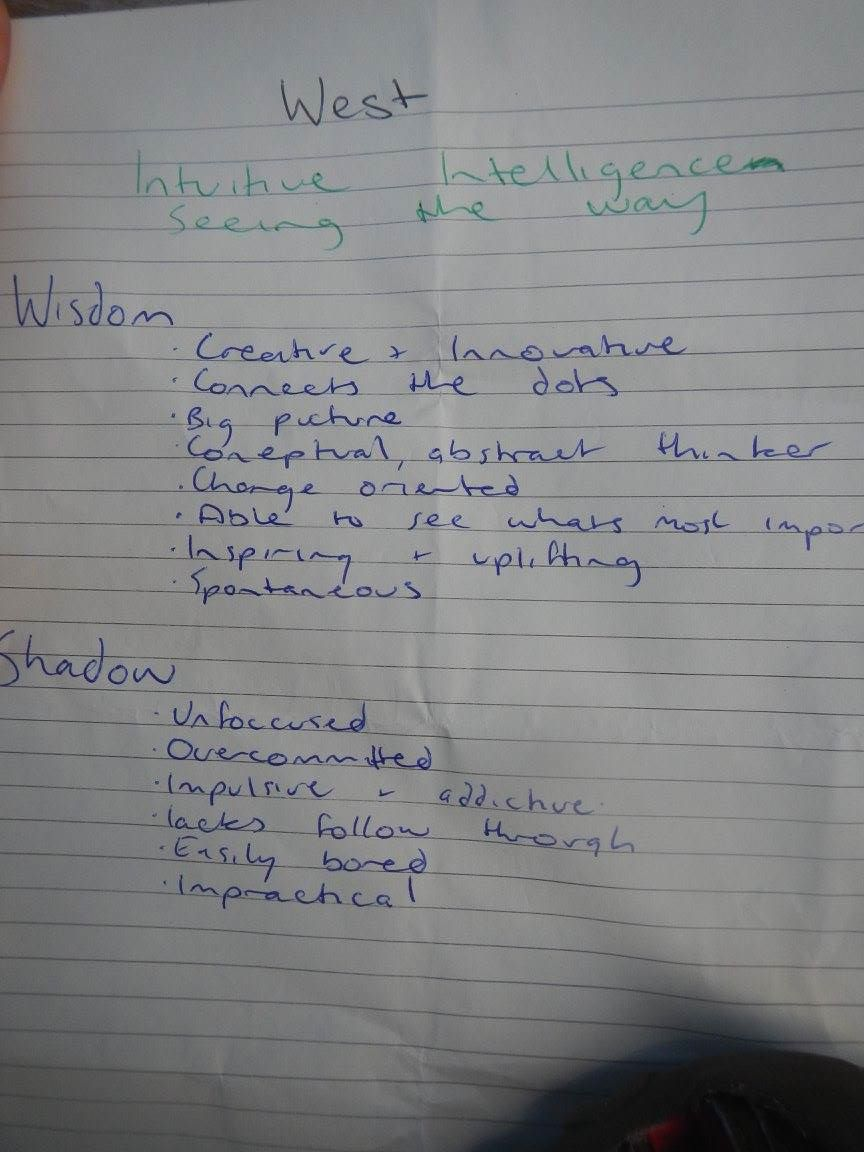 West
Intuitive Intelligence
Seeing the way
Wisdom
· Creative + Innovative
· Connects the dots
· Big picture
· Coneptual, abstract thinker
· Change oriented
· Able to see whats most impor
· Inspiring + uplifting
· Spontaneous
Shadow
· Unfoccused
· Overcommitted
· Impulsive + addictive
· lacks follow through
· Easily bored
· Impractical